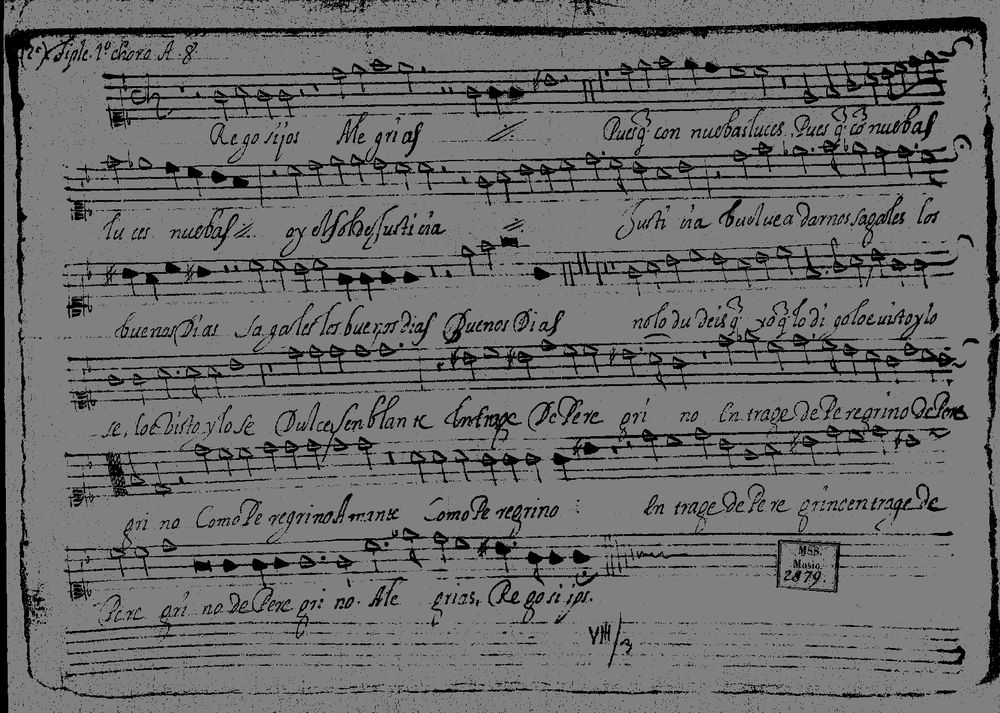 Tiple. 1º choro A. 8
Regosijos Alegrias Pues q con nuebas luces. Pues q cõ nuebas
luces nuebas oy el sol de Justicia Justi cia buelue a darnos sagales los
buenos Dias sagales los buenos dias Buenos Dias nolo dudeis q yo q lo di go lo e uisto y lo
se, lo e bisto y lo se Dulce senblante En trage De Pere gri no En trage de Pe regrino de Pere
gri no Como Pe regrino Amante Como Pe regrino En trage de Pe re grino en trage de
Pere gri no de Pere gri no. Ale grias, Re go si jos.
MSS.
Music.
2879.
VIII/3